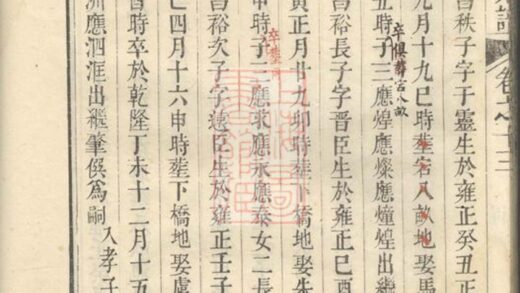 卷之十三
昌秩子字于靈生於雍正癸丑正
九月十九巳時塟宕八畝娶馬
卒俱塟宕八畝
五時子三應煌應燦應燑煌出繼
昌裕長子字晋臣生於雍正己酉
寅正月廿九卯時塟下橋地娶朱
申時子三應求應永應泰女二長
昌裕次子字遠臣生於雍正壬子
巳四月十六申時塟下橋地娶虞
時卒於乾隆丁未十二月十五
洲應泗洭出繼肇俁為嗣
入孝子